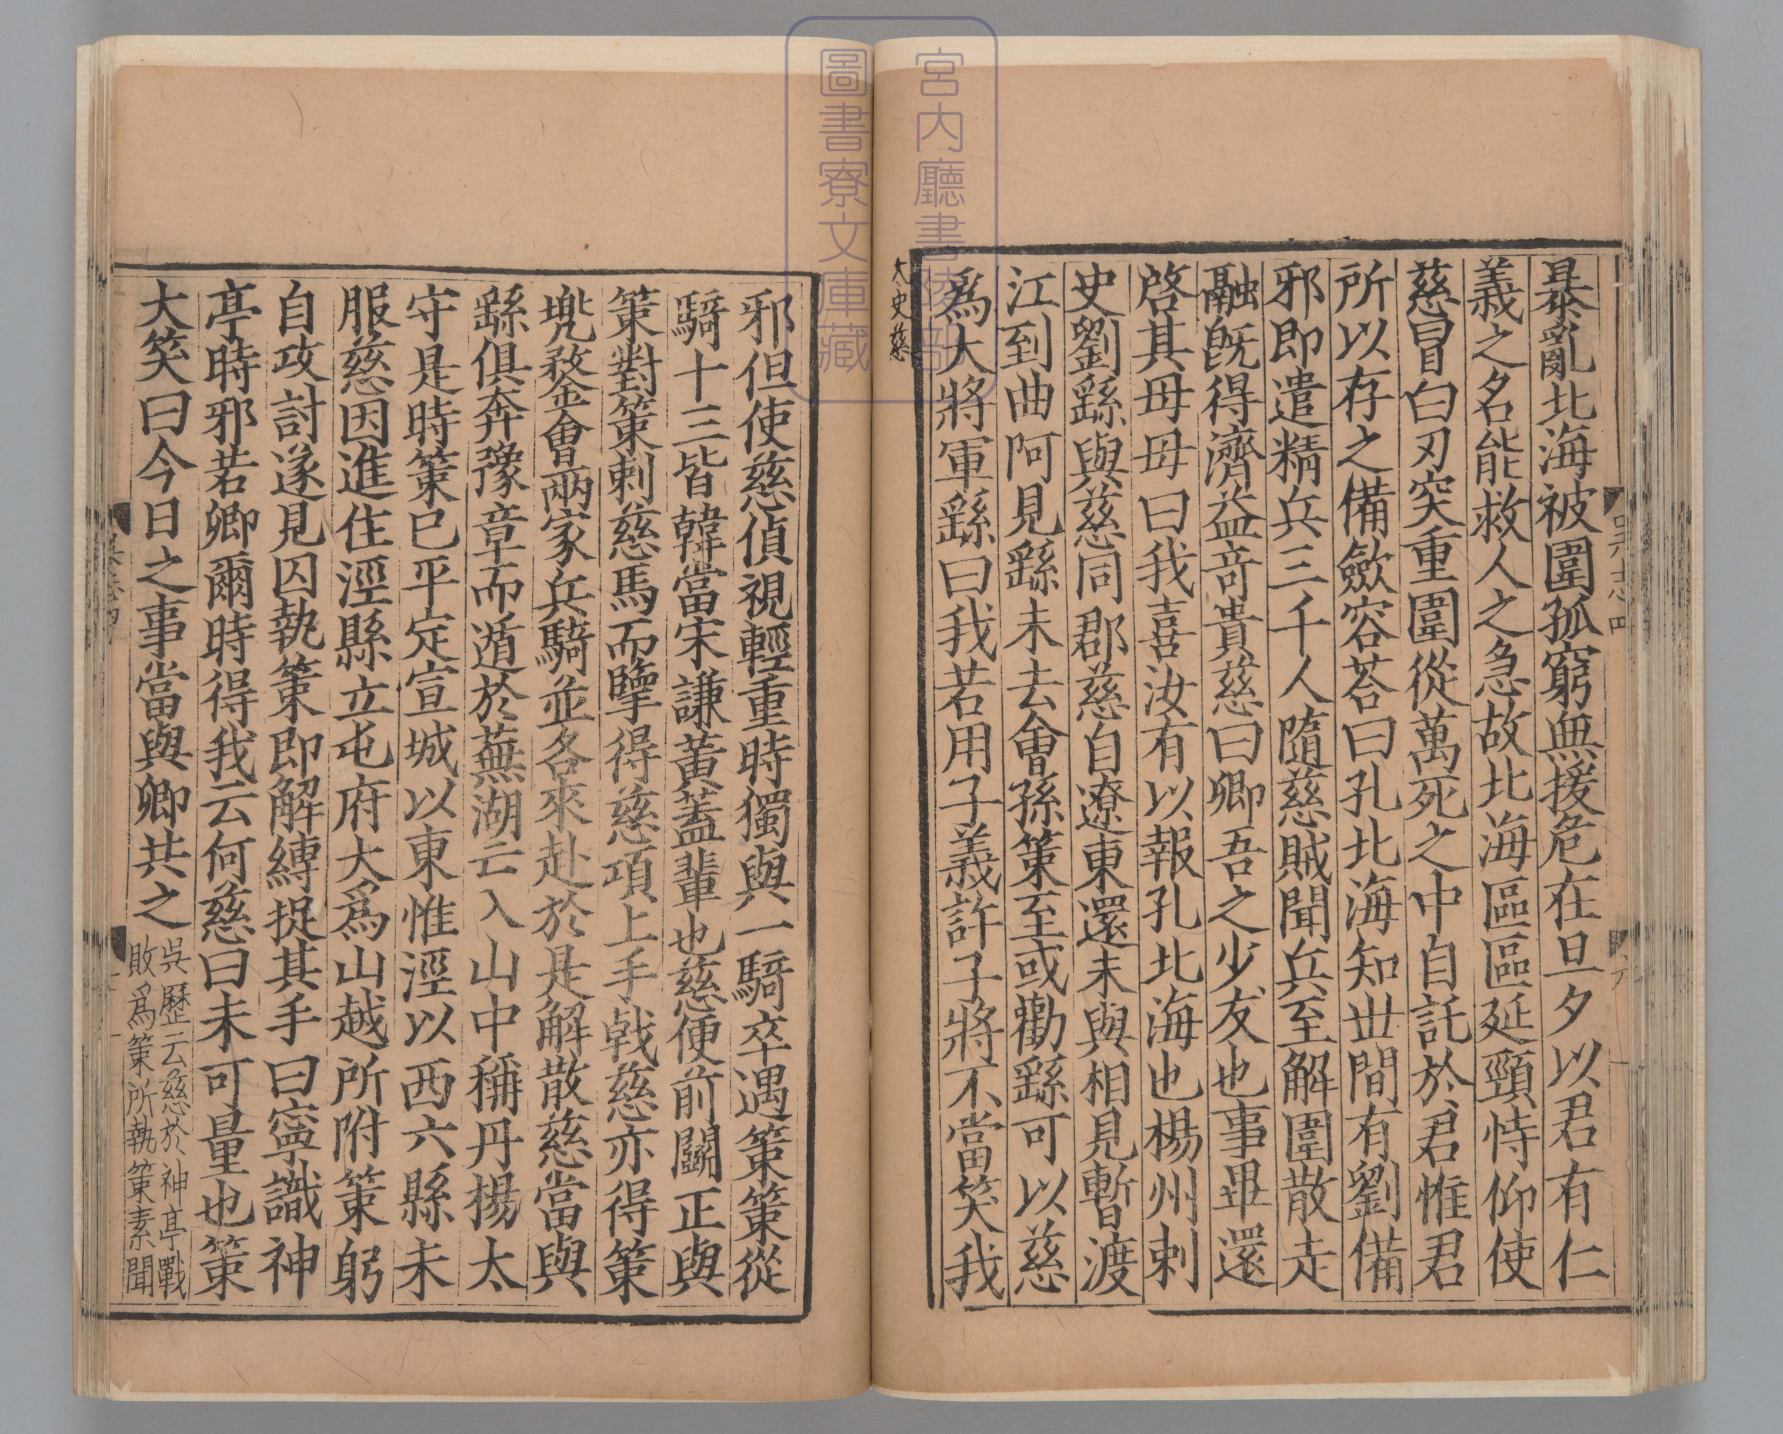 暴亂北海被圍孤窮無援危在旦夕以君有仁
義之名能救人之急故北海區區延頸恃仰使
慈冒白刃突重圍從萬死之中自託於君惟君
所以存之備歛容荅曰孔北海知世間有劉備
邪即遣精兵三千人隨慈賊聞兵至解圍散走
融旣得濟益竒貴慈曰卿吾之少友也事畢還
啓其母母曰我喜汝有以報孔北海也楊州刺
史劉繇與慈同郡慈自遼東還未與相見暫渡
江到曲阿見繇未去會孫策至或勸繇可以慈
爲大將軍繇曰我若用子義許子將不當笑我
大史慈
邪但使慈偵視輕重時獨與一騎卒遇策策從
騎十三皆韓當宋謙黃蓋輩也慈便前鬭正與
策對策刺慈馬而擥得慈項上手戟慈亦得策
兠鍪會兩家兵騎並各來赴於是解散慈當與
繇俱奔豫章而遁於蕪湖云入山中稱丹楊太
守是時策已平定宣城以東惟涇以西六縣未
服慈因進住涇縣立屯府大爲山越所附策躬
自攻討遂見囚執策即解縛捉其手曰寧識神
亭時邪若卿爾時得我云何慈曰未可量也策
大笑曰今日之事當與卿共之
吳歷云慈於神亭戰
敗爲策所執策素聞
宮内廳書陵部
圖書寮文庫藏
吳志四